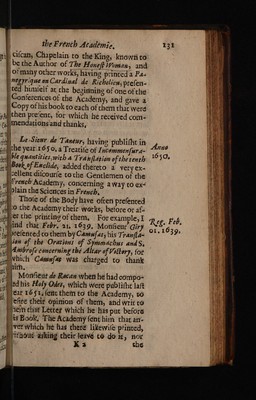 the French Academie. 131
ciscan, Chapelain to the King, known to
be the Author of The Honest Woman, and
of many other works, having printed a Pa-
negyrique on Cardinal de Richelieu, presen-
ted himself at the beginning of one of the
Conferences of the Academy, and gave a
Copy of his book to each of them that were
then present, for which he received com-
mendations and thanks.
Le Sieur de Taneur, having publisht in
the year 1650. a Treatise of Incommensura-
ble quantities, with a Translation of the tenth
Book of Euclide, added thereto a very ex-
cellent discourse to the Gentlemen of the
French Academy, concerning a way to ex-
plain the Sciences in French.
Anno
1650.
Those of the Body have often presented
to the Academy their works, before or af-
ter the printing of them. For example, I
find that Febr. 21. 1639. Monsieur Giry
presented to them by Camusat, his Transla-
tion of the Orations of Symmachus and S.
Ambrose concerning the Altar of Victory, for
which Camusat was charged to thank
him.
Reg. Feb.
01. 1639.
Monsieur de Racan when he had compo-
sed his Holy Odes, which were publisht last
year 1651, sent them to the Academy, to
desire their opinions of them, and writ to
them that Letter which he has put before
his Book. The Academy sent him that an-
swer which he has there likewise printed,
without asking their leave to do it, nor
K 2 the